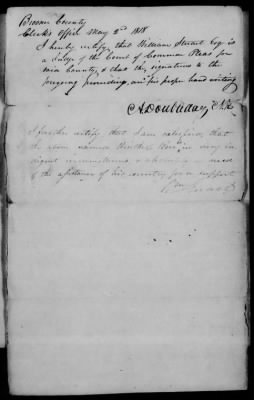 Broome County
Clerk's Office May 2d 1818
I hereby certify, that William Stuart Esq is
a Judge of the Court of Common Pleas for
said County, & that the signatures to the
foregoing proceeding are his proper hand writing
A Doubleday Clk
I further certify that I am satisfied, that
the above named is very in
digent circumstances & absolutely in need
of the assistance of his country for a support
Wm Stuart